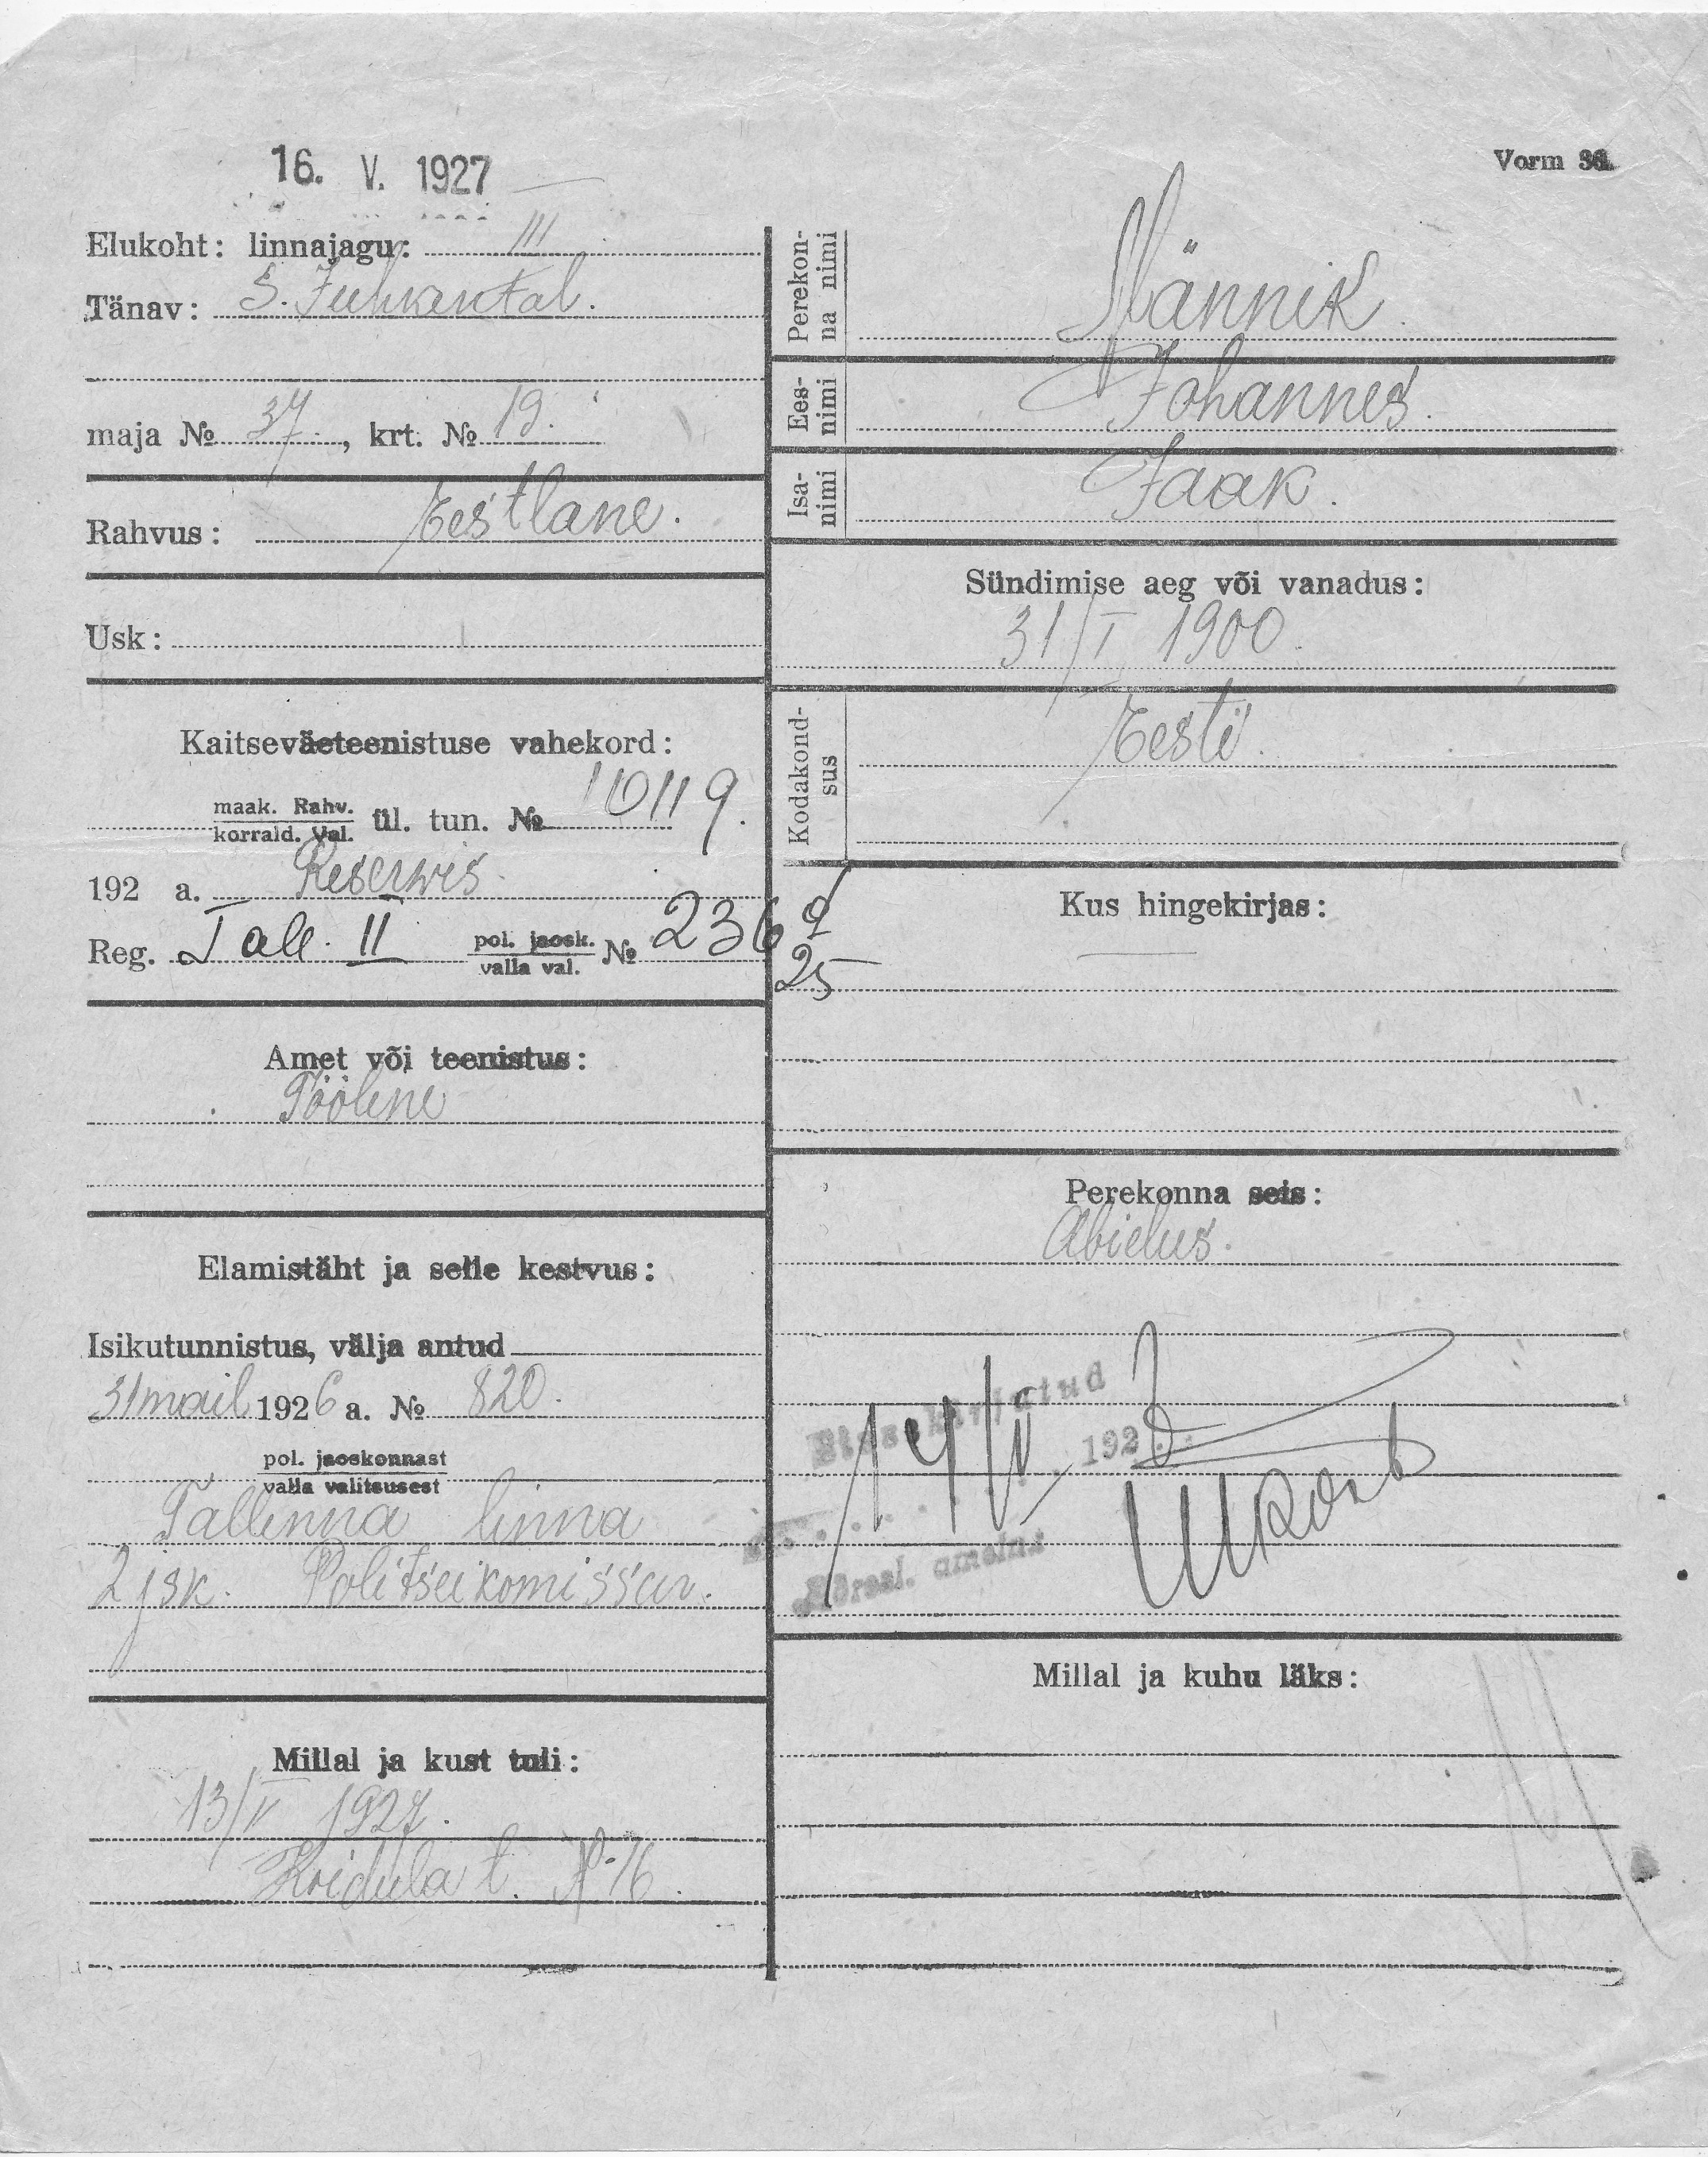 16. V. 1927
Vorm 36.
Elukoht: linnajagu: III
Tänav: S. Juhkental.
maja № 37., krt. № 19.
Rahvus: Eestlane.
Usk:
Kaitseväeteenistuse vahekord:
maak. Rahv.
korrald. Val. ül. tun. № 10119.
192 a. Reserwis.
Reg. Tall. II pol. jaosk.
valla val. № 2369
25
Amet või teenistus:
Tööline
Elamistäht ja selle kestvus:
Isikutunnistus, välja antud
31 mail 1926 a. № 820.
pol. jaoskonnast
valla valitsusest
Tallinna linna
2 jsk. Politseikomissar.
Millal ja kust tuli:
13/V 1927.
Koidula t. №-16.
Perekon-
na nimi
Männik.
Ees-
nimi
Johannes.
Isa-
nimi
Jaak.
Sündimise aeg või vanadus:
31/I 1900.
Kodakond-
sus
Eesti.
Kus hingekirjas:
Perekonna seis:
Abielus.
192
Millal ja kuhu läks: